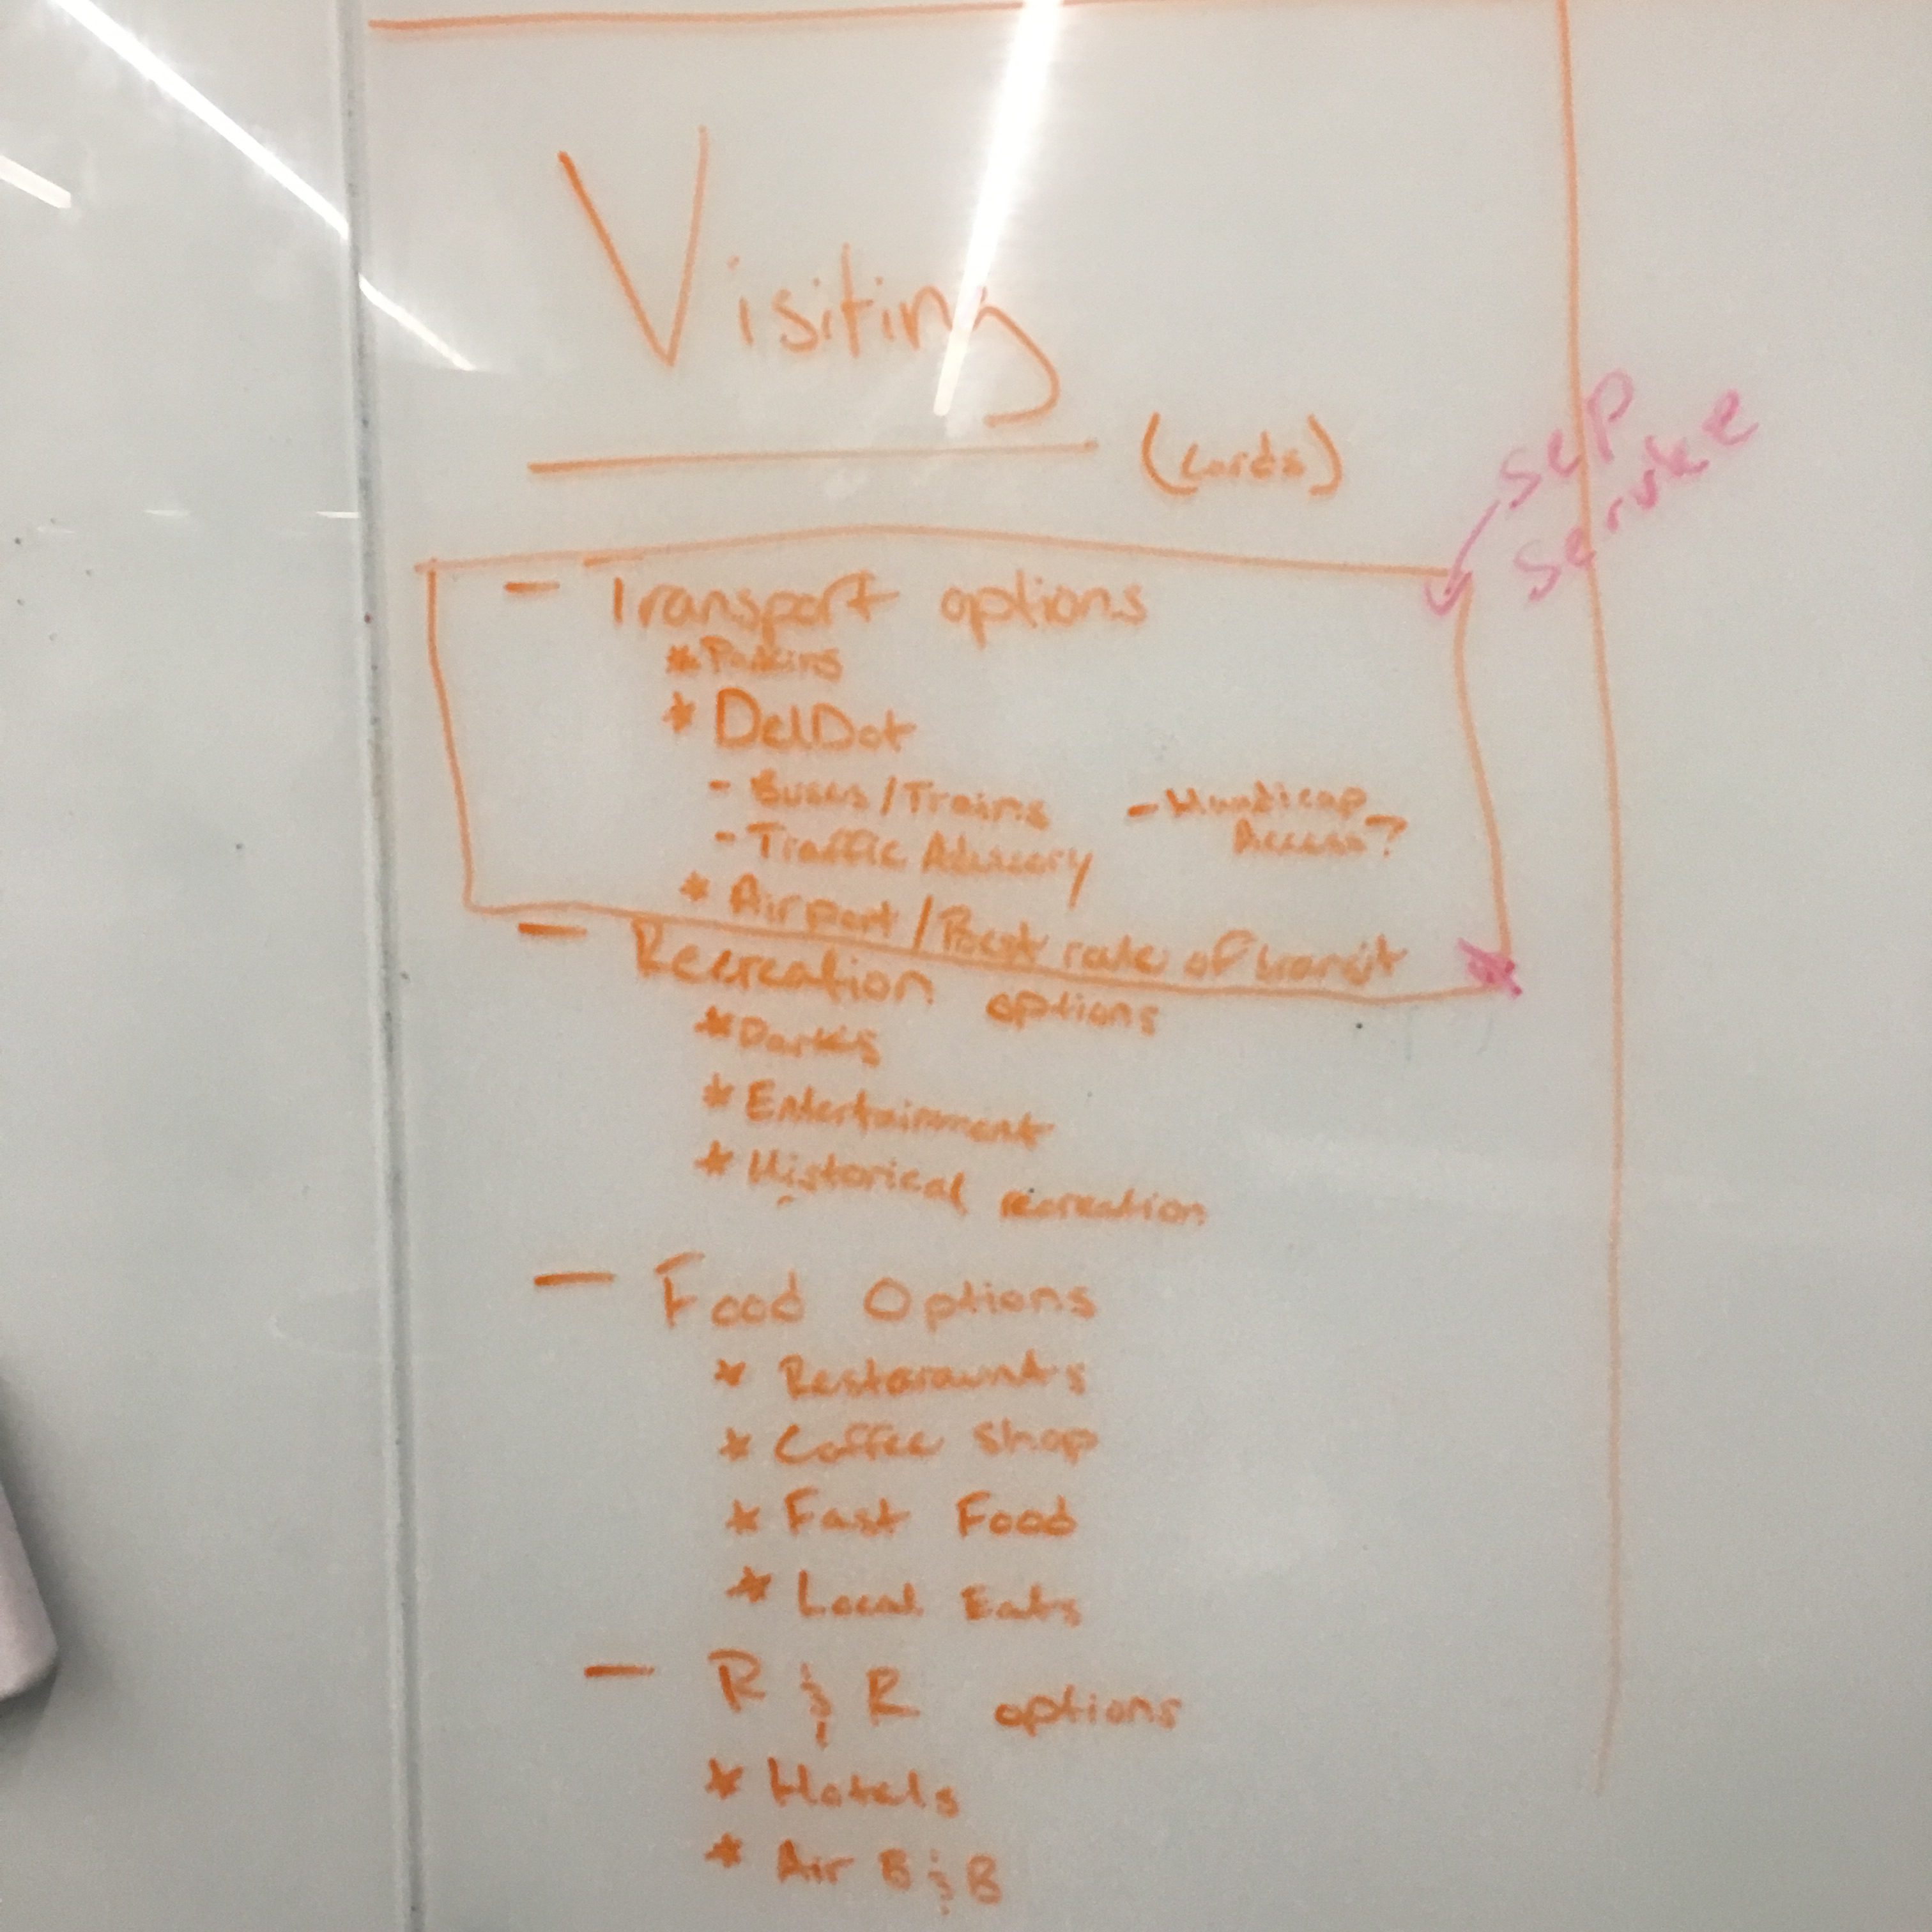 Visiting
(cards)
sep
service
- Transport options
* Parking
* DelDot
- Buses/Trains
- Handicap
Access?
- Traffic Advisory
* Airport/Best rate of transit
- Recreation options
* Parks
* Entertainment
* Historical recreation
- Food Options
* Restaraunts
* Coffee Shop
* Fast Food
* Local Eats
- R & R options
* Hotels
* Air B & B